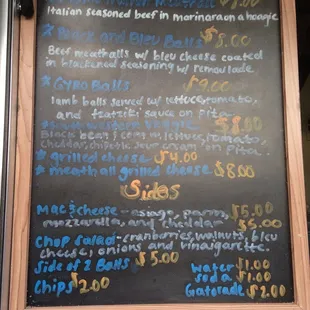 $8.00
Italian seasoned beef in marinara on a hoagie
* Black and Bleu Balls $8.00
Beef meatballs w/ bleu cheese coated
in blackened seasoning w/ remoulade
* Gyro Balls $9.00
lamb balls served w/ lettuce, tomato,
and tzatziki sauce on pita
$8.00
Black bean & corn w/ lettuce, tomato,
cheddar, chipotle sour cream on pita
* grilled cheese $4.00
* meatball grilled cheese $8.00
Sides
Mac & cheese - asiago, parm, $5.00
mozzarella, and cheddar $5.00
Chop Salad - cranberries, walnuts, bleu
cheese, onions and vinaigarette.
Side of 2 Balls $5.00
Water $1.00
Soda $1.00
Chips $2.00
Gatorade $2.00